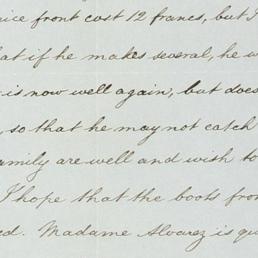 nice front cost 12 francs, but I
that if he makes several, he w
is now well again, but does
, so that he may not catch
family are well and wish to
I hope that the boots fro
ed. Madame Alvarez is qu